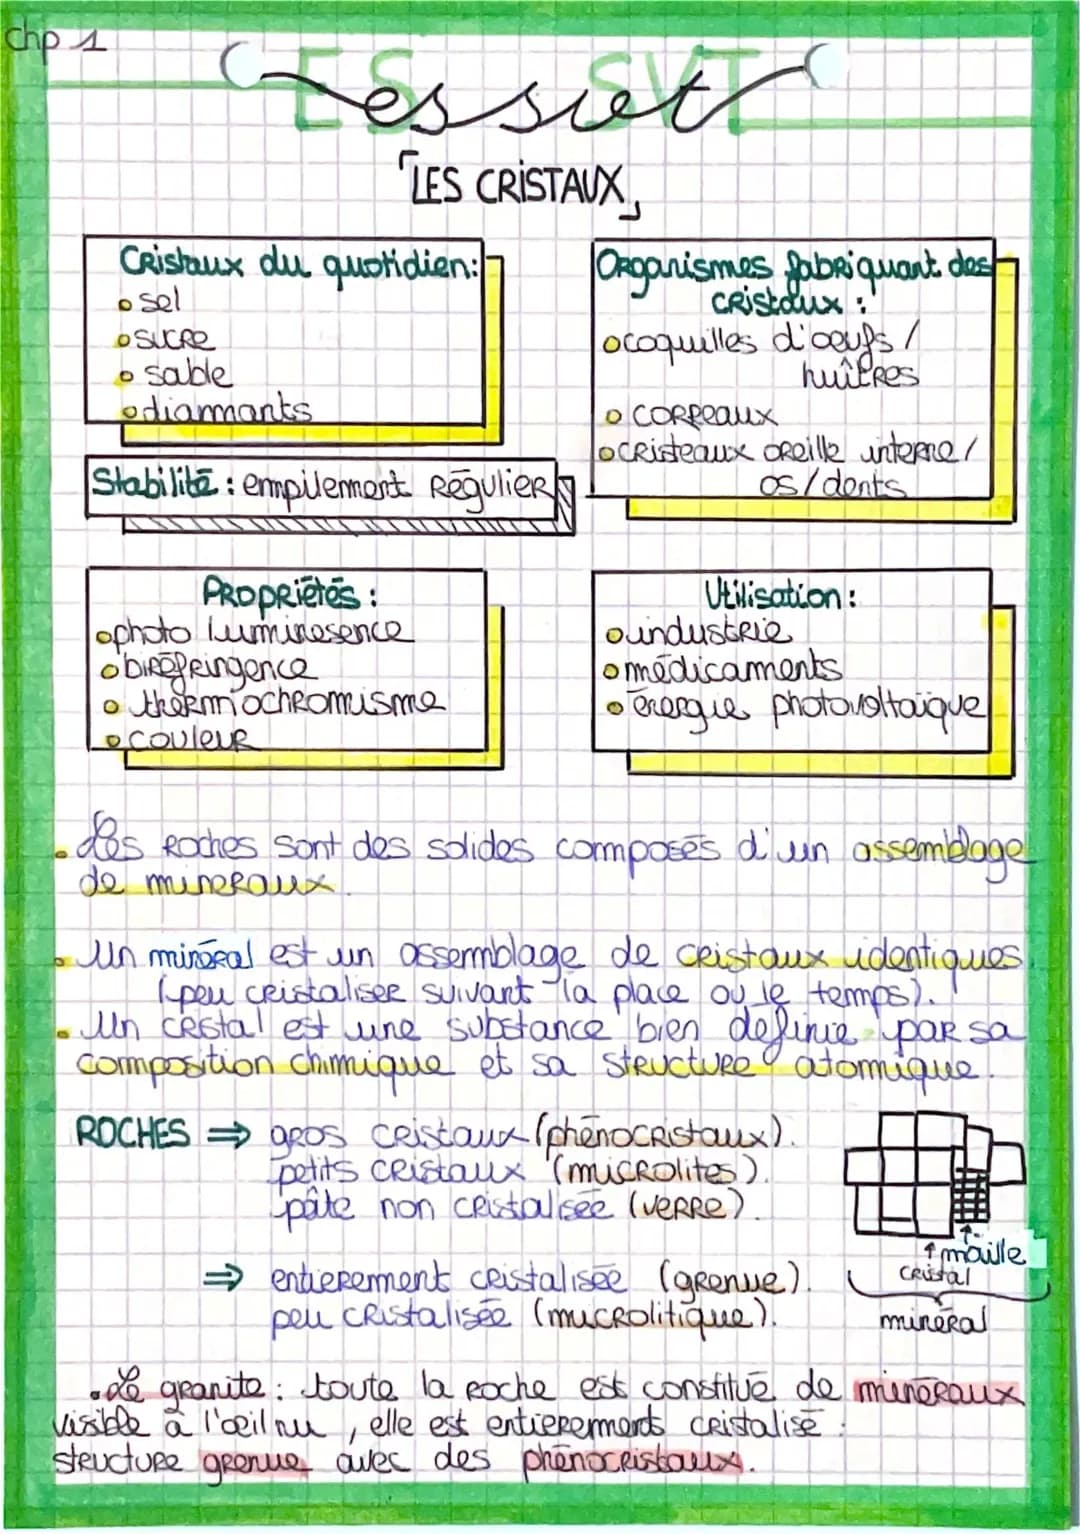 chp 1
ES SVT
es svt
「LES CRISTAUX」
Cristaux du quotidien:
sel
sucre
sable
diamants
Organismes fabriquant des
cristaux :
coquilles d'oeufs /
huîtres
correaux
cristeaux oreille interne /
os / dents
Stabilité : empilement régulier
Propriétés :
photo luminesence
biréfringence
thermochromisme
couleur
Utilisation :
industrie
médicaments
énergie photovoltaïque
. Les Roches sont des solides composés d'un assemblage
de mineraux.
. Un minéral est un assemblage de cristaux identiques.
(peu cristaliser suivant la place ou le temps).
. Un cristal est une substance bien definie par sa
composition chimique et sa structure atomique.
ROCHES ⇒ gros cristaux (phénocristaux).
petits cristaux (microlites).
pâte non cristalisée (verre).
⇒ entierement cristalisée (grenue).
peu cristalisée (microlitique).
↑ maille
↑ cristal
minéral
. Le granite : toute la roche est constitué de minéraux
visible à l'œil nu, elle est entierements cristalisé :
structure grenue avec des phénocristaux.